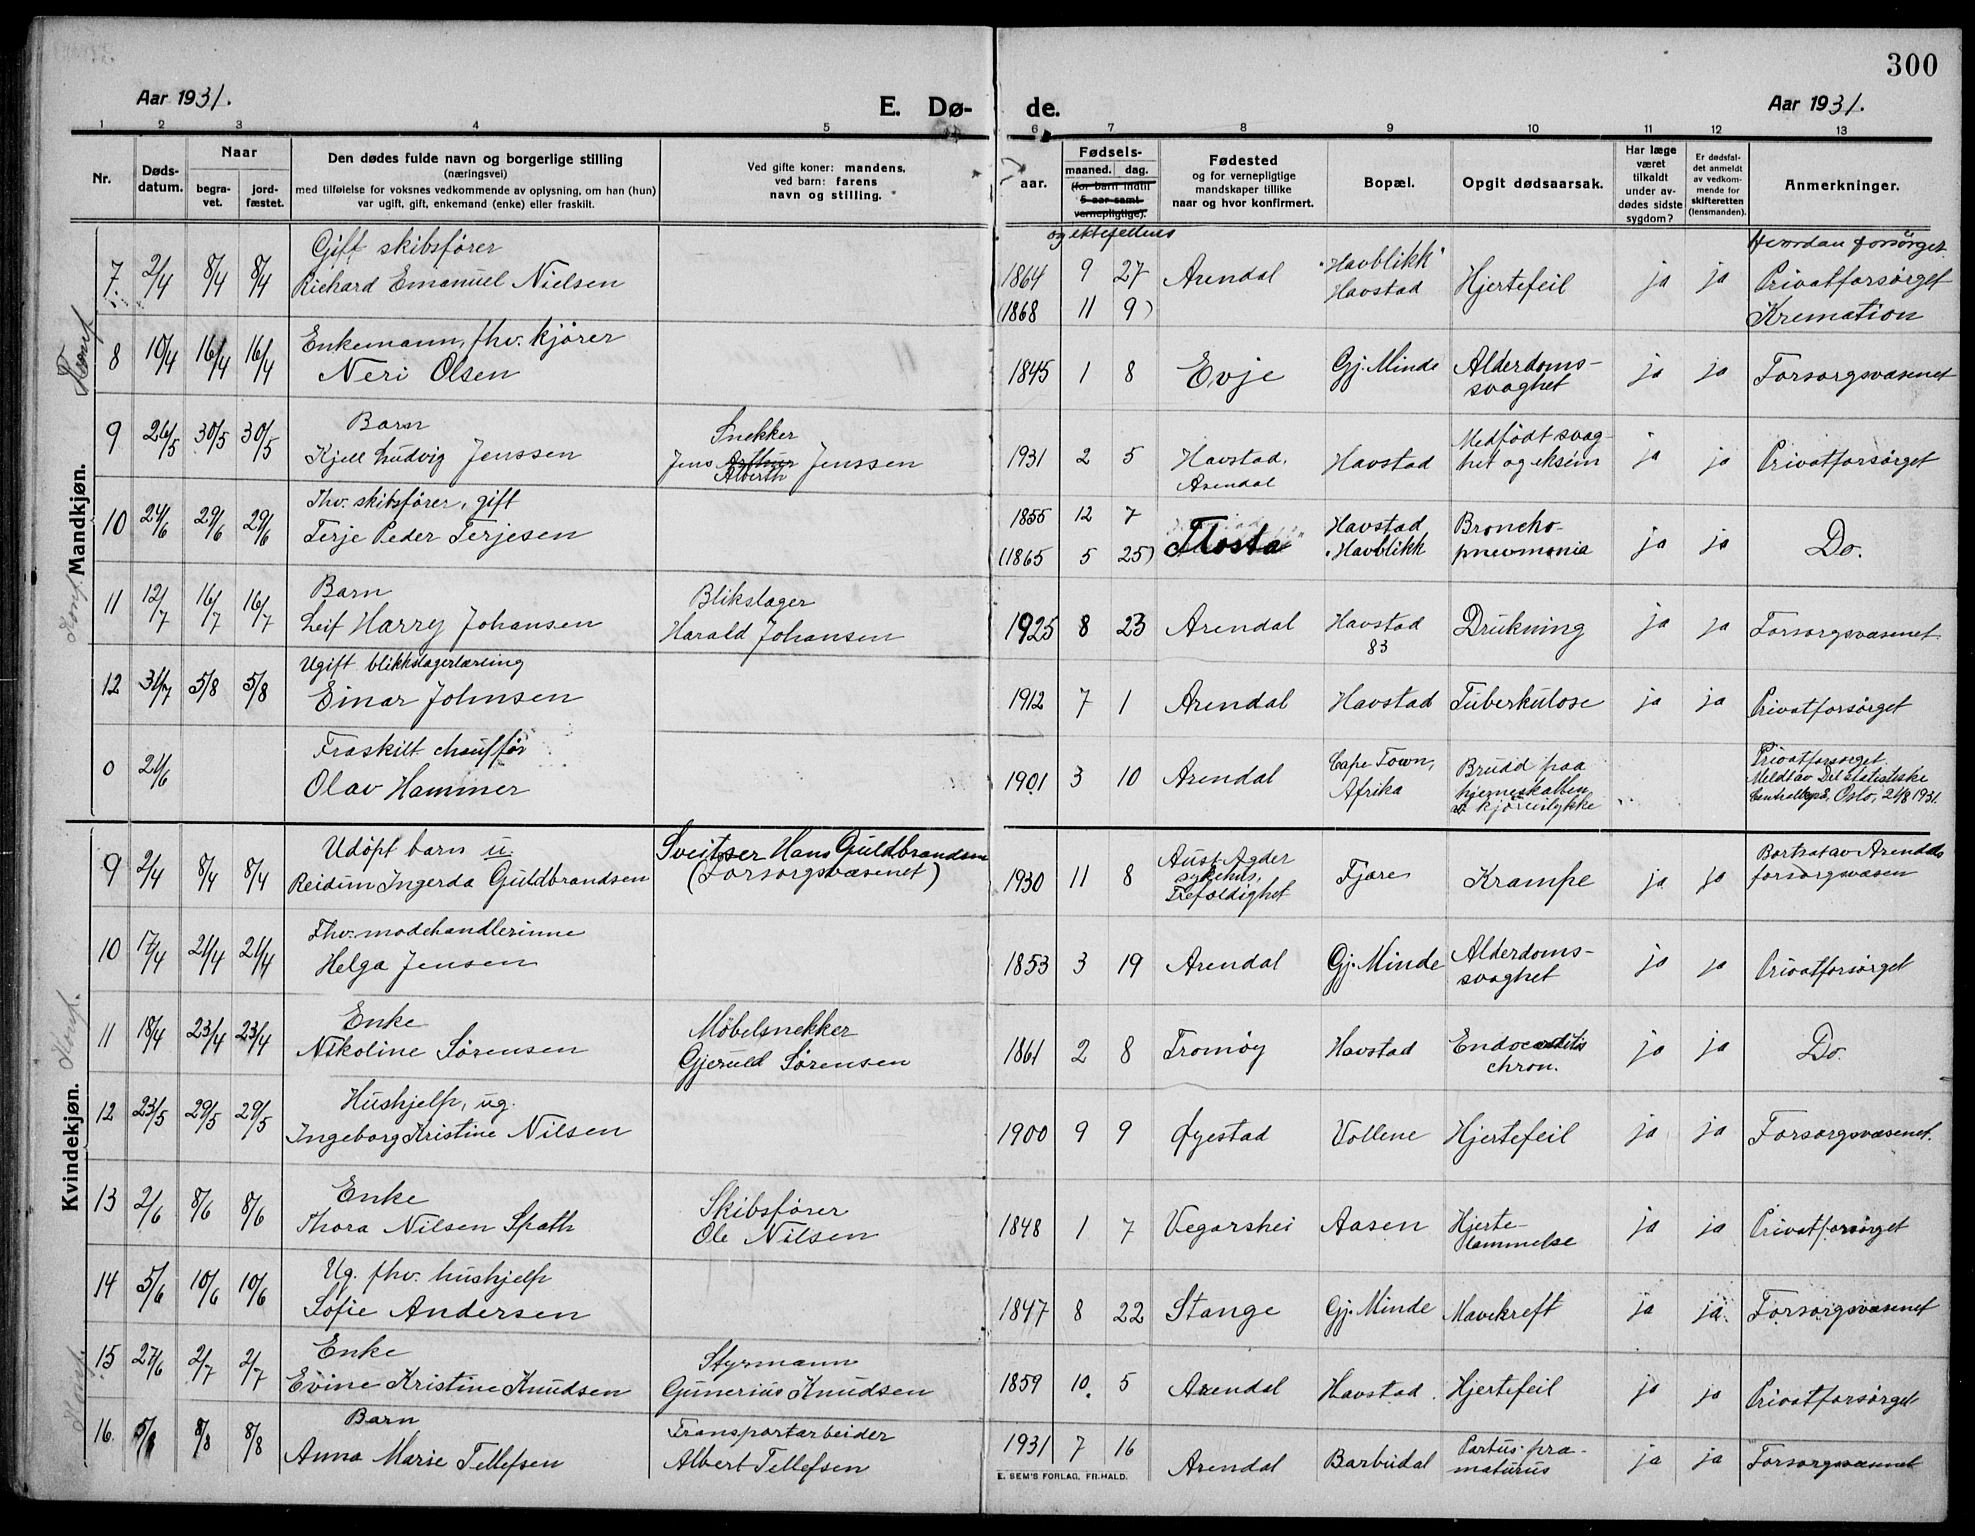 300
Aar 1931.
E. Dø- de.
Aar 1931.
1 2 3 4 5 6 7 8 9 10 11 12 13
Nr.
Døds-
datum.
Naar
begra-
vet.
jord-
fæstet.
Den dødes fulde navn og borgerlige stilling
(næringsvei)
med tilføielse for voksnes vedkommende av oplysning, om han (hun)
var ugift, gift, enkemand (enke) eller fraskilt.
Ved gifte koner: mandens,
ved barn: farens
navn og stilling.
Fødsels-
aar.
maaned.
dag.
(for barn indtil
5 aar samt
vernepligtige).
og ektefellens
Fødested
og for vernepligtige
mandskaper tillike
naar og hvor konfirmert.
Bopæl.
Opgit dødsaarsak.
Har læge
været
tilkaldt
under av-
dødes sidste
sygdom?
Er dødsfal-
det anmeldt
av vedkom-
mende for
skifteretten
(lensmanden).
Anmerkninger.
Hvordan forsørget.
Mandkjøn.
Gift skibsfører
7. 2/4 8/4 8/4 Richard Emanuel Nielsen 1864 9 27 Arendal "Havblikk" Havstad Hjertefeil ja ja Privatforsørget
(1868 11 9) Kremation
Enkemann, fhv. kjører
8 10/4 16/4 16/4 Neri Olsen 1845 1 8 Evje Gj. Minde Alderdoms-
svaghet ja ja Forsorgsvæsenet
Barn Snekker
9 26/5 30/5 30/5 Kjell Ludvig Jenssen Jens Arthur Jenssen 1931 2 5 Havstad, Havstad Medfødt svag-
Alberth Arendal het og eksem ja ja Privatforsørget
Fhv. skibsfører, gift
10 24/6 29/6 29/6 Terje Peder Terjesen 1855 12 7 Flosta Havstad Broncho-
(1865 5 25) "Havblikk pneumonia ja ja Do.
Barn Blikslager
11 12/7 16/7 16/7 Leif Harry Johansen Harald Johansen 1925 8 23 Arendal Havstad Drukning ja ja Forsorgsvæsenet
83
Ugift blikkslagerlærling
12 31/7 5/8 5/8 Einar Johnsen 1912 7 1 Arendal Havstad Tuberkulose ja ja Privatforsørget
Fraskilt chauffør
0 21/6 Olav Hammer 1901 3 10 Arendal Cape Town, Brudd paa Privatforsørget.
Afrika hjerneskallen, Meldt av Det Statistiske
kjøreulykke Centralbyrå, Oslo, 21/8 1931.
Kvindekjøn.
Udøpt barn u. Sveitser Hans Guldbrandsen
9 2/4 8/4 8/4 Reidun Ingerda Guldbrandsen (Forsorgsvæsenet) 1930 11 8 Aust Agder
sykehus,
Trefoldighet Fjære Krampe ja ja Bortsat av Arendals
forsorgsvæsen
Fhv. modehandlerinne
10 17/4 21/4 21/4 Helga Jensen 1853 3 19 Arendal Gj. Minde Alderdoms-
svaghet ja ja Privatforsørget
Enke Møbelsnekker
11 18/4 23/4 23/4 Nikoline Sørensen Gjeruld Sørensen 1861 2 8 Tromøy Havstad Endocarditis
chron. ja ja Do.
Hushjelp, ug.
12 23/5 29/5 29/5 Ingeborg Kristine Nilsen 1900 9 9 Øyestad Vollene Hjertefeil ja ja Forsorgsvæsenet.
Enke Skibsfører
13 2/6 8/6 8/6 Thora Nilsen Spath Ole Nilsen 1848 1 7 Vegarshei Aasen Hjerte-
lammelse ja ja Privatforsørget
Ug. fhv. hushjelp
14 5/6 10/6 10/6 Sofie Andersen 1847 8 22 Stange Gj. Minde Mavekreft ja ja. Forsorgsvæsenet
Enke Styrmann
15 27/6 2/7 2/7 Evine Kristine Knudsen Gunerius Knudsen 1859 10. 5 Arendal Havstad. Hjertefeil ja ja Privatforsørget
Barn Transportarbeider
16. 8/8 8/8 Anna Marie Tellefsen Albert Tellefsen 1931 7 16 Arendal Barbudal Partus præ-
maturus ja ja Forsorgsvæsenet
E. SEM'S FORLAG, FR.HALD.